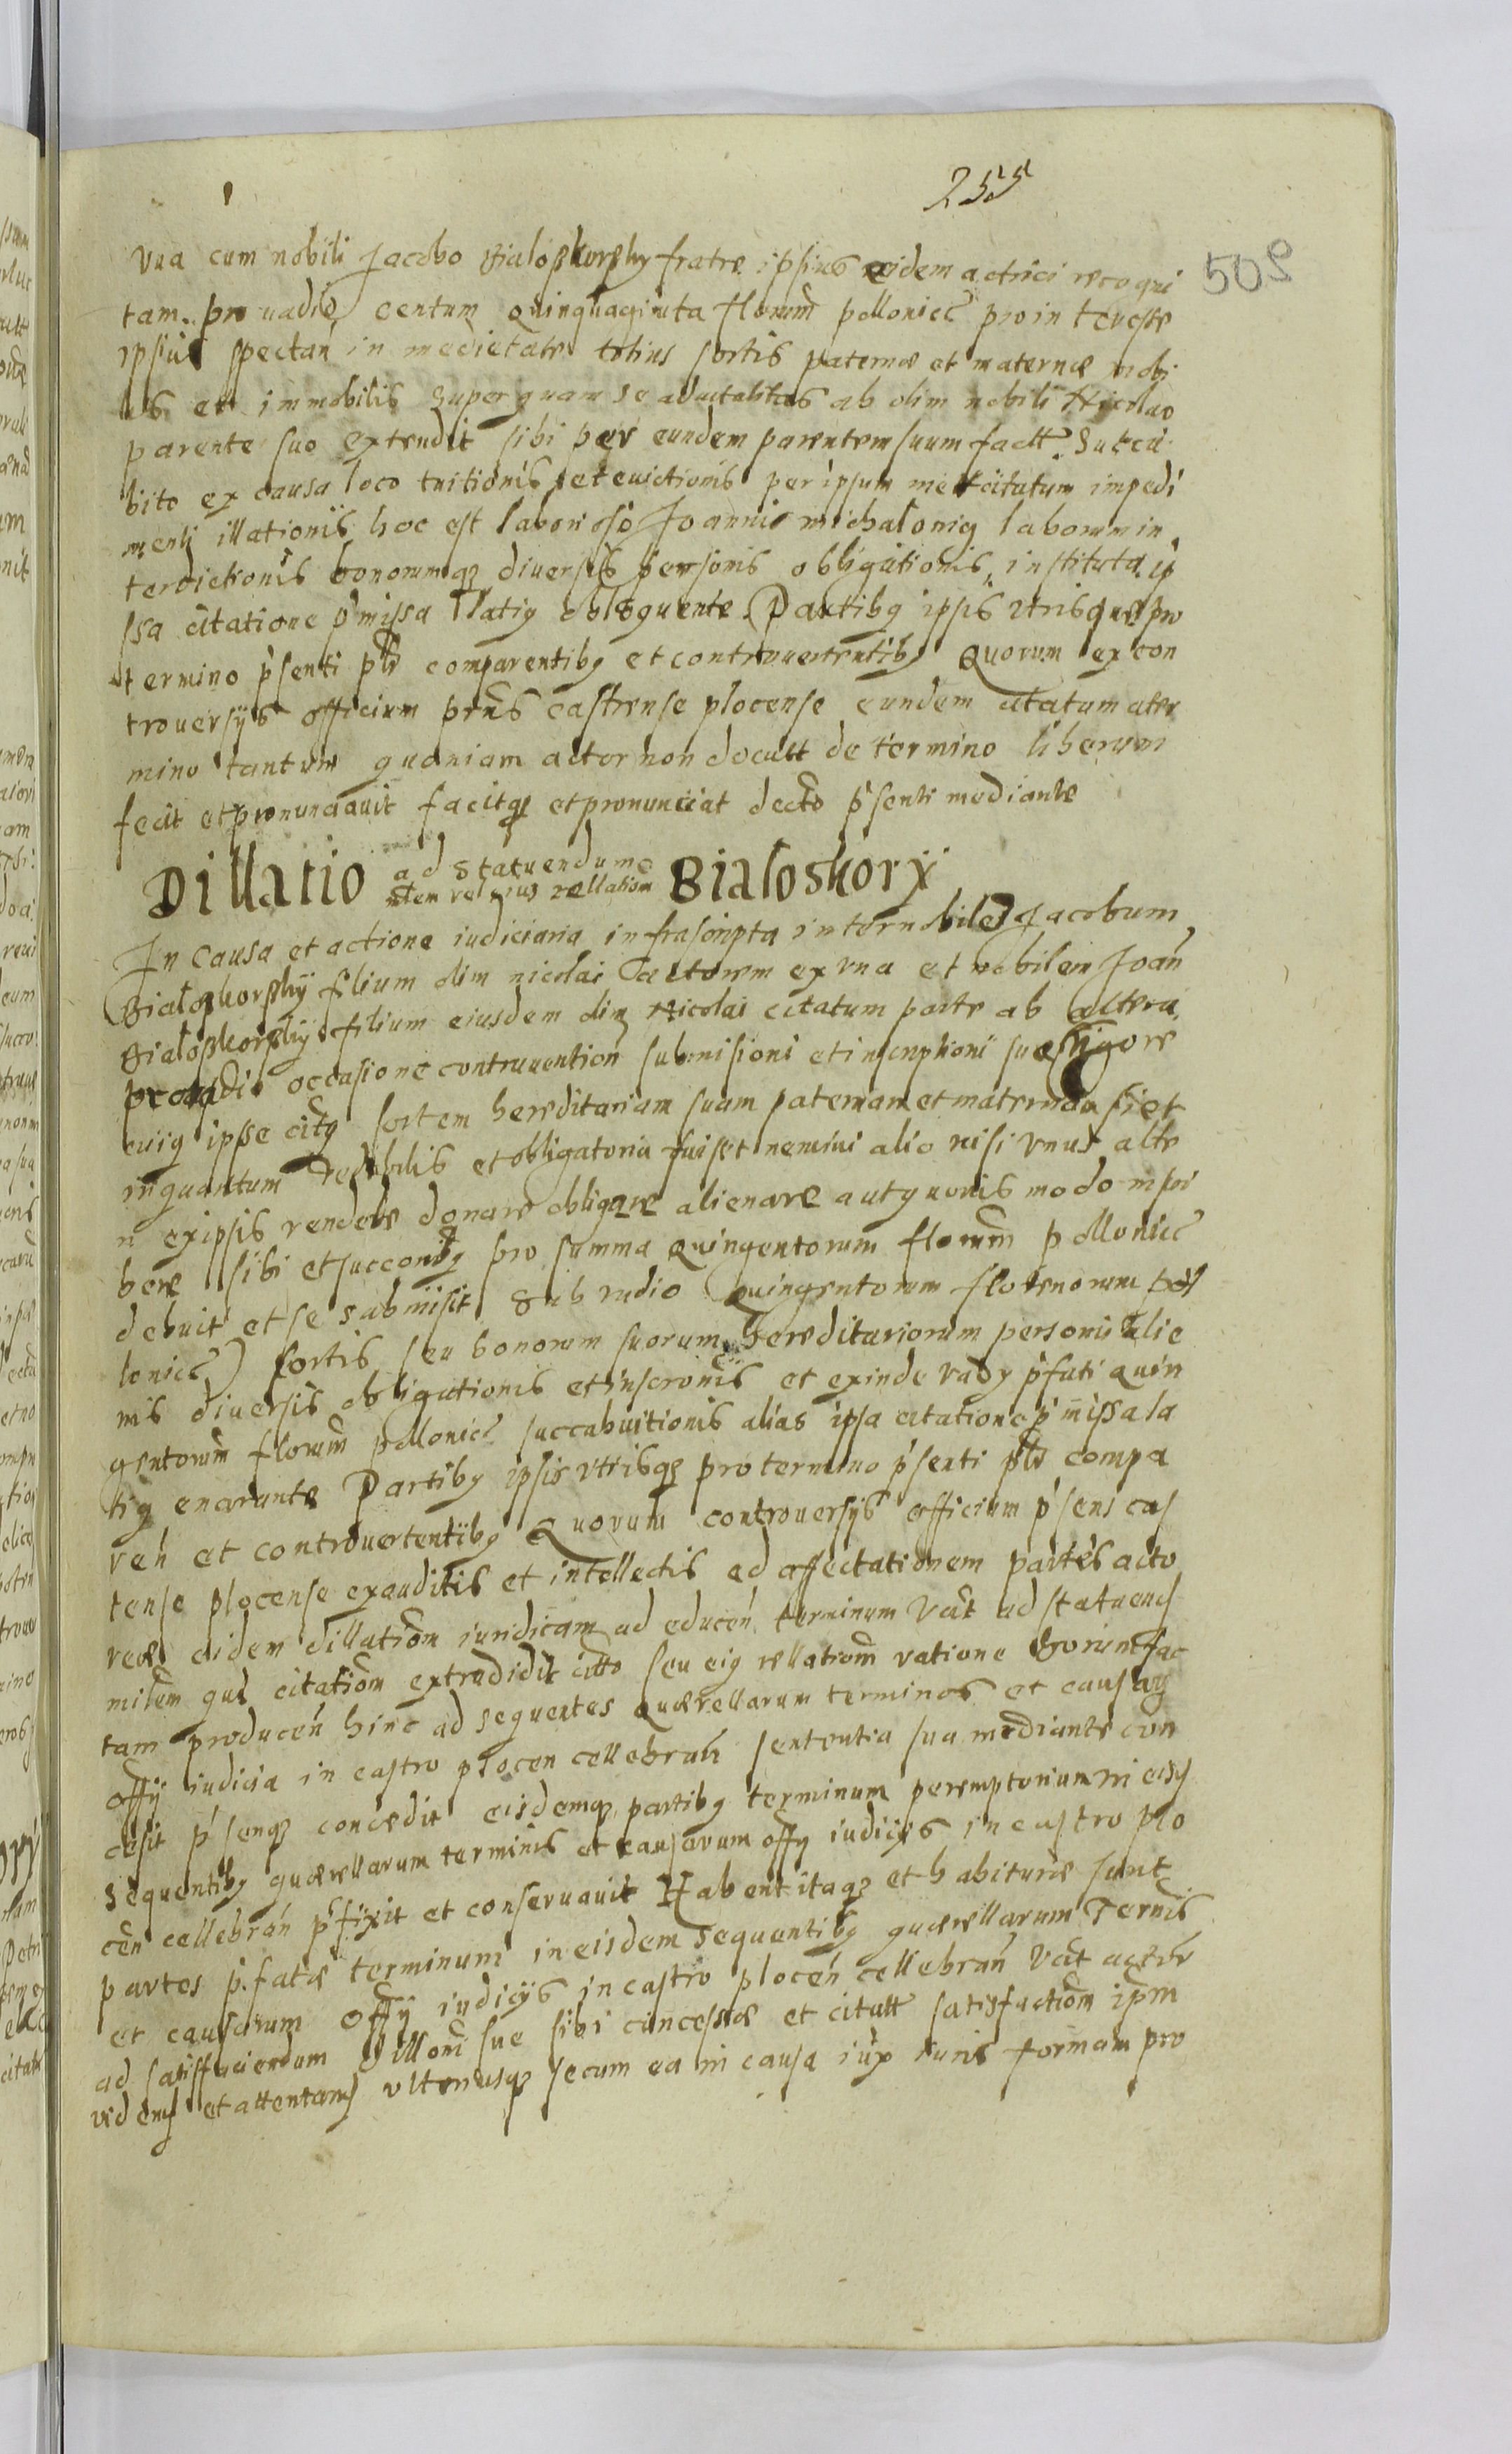 255
509
Vna cum nobili Jacobo Bialoskorsky fratre ipsius eidem actrici recogni
tam pro uadio centum quinquaginta florum pollonicc pro interesse
ipsius spectan in medietate totius sortis paternæ et maternæ mobi
lis et immobilis super quam se ab olim nobili Nicolao
parente suo extendit sibi per eundem parentem suum factt. Succu
bito ex causa loco tuitionis et euictionis per ipsum citatum impedi
menti illationis hoc est laborioso Joannis laborum in
terdictionis bonorumq diuersis personis obligationis instituta ip
sa citatione pmissa latiq obloquente Partibq ipsis vtrisque pro
termino psenti pltr comparentibq et controuertentibq Quorum ex con
trouersijs officium prns castrense plocense eundem citatum a ter
mino tantum quoniam actor non docuit de termino liberum
fecit et pronunciauit facitq et pronunciat decto psenti mediante
Dillatio ad statuendum
ntem vel eius rellationem Bialoskorÿ
In Causa et actione iudiciaria infrascripta inter nobiles Jacobum
Bialoskorskÿ filium olim nicolai actorem ex vna et nobilem Joan
Bialoskorskÿ filium eiusdem olim Nicolai citatum parte ab altera
occasione contrauention submisioni et inscriptioni suæ vigore
cuiq ipse citq sortem hereditariam suam paternam et maternam si et
inquantum vedibilis et obligatoria fuisset nemini alio nisi vnus alte
ri ex ipsis vendere donare obligare alienare aut quouis modo inscri
bere sibi et succorubq pro summa quingentorum florum pollonicc
debuit et se submisit sub vadio quingentorum florenorum pol
lonicc) sortis seu bonorum suorum hereditariorum personis alie
nis diuersis obligationis et inscronis et exinde vady pfati quin
gentorum florum pollonicc succabuitionis alias ipsa citatione pmissa la
tiq enarrante Partibq ipsis vtrisq pro termino psenti pltr compa
ren et controuertentibq Quorum controuersijs officium psens cas
trense plocense exauditis et intellectis ad affectationem partis acto
reæ eidem dillationem iuridicam ad educen terminum vidt ad statuend
milem qui citationem extradidit citto seu eiq rellationem ratione horum fac
tam producen hinc ad sequentes quærellarum terminos et causarq
offÿ iudicia in castro plocen cellebran sententia sua mediante con
cesit psenq concedit eisdemq partibq terminum peremptorium in eisd
sequentibq quærellarum terminis et causarum offÿ iudicijs in castro plo
cen cellebran pfixit et conseruauit Habent itaq et habituræ sunt
partes pfatæ terminum in eisdem sequentibq quærellarum Ternis
et causarum Offÿ iudicijs in castro plocen cellebran vidt actor
ad satisffaciendum dillони suæ sibi concessæ et citatt satisfactionem ipm
videns et attentans vlteriusq secum ea in causa iux iuris formam pro